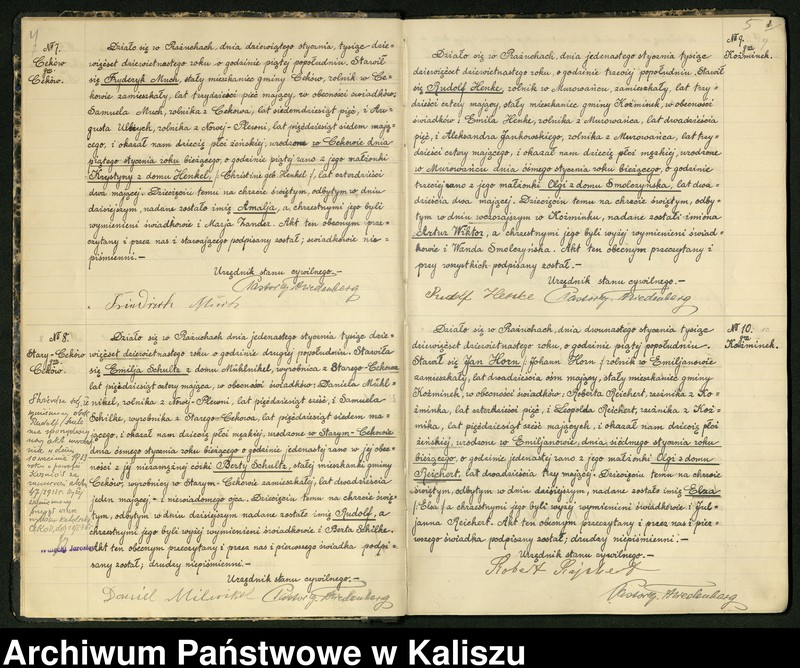 4
№ 7.
Ceków
gm.
Ceków.
Działo się w Prażuchach, dnia dziewiątego stycznia, tysiąc dzie-
więćset dziewiętnastego roku o godzinie piątej popołudniu. Stawił
się Fryderyk Much, stały mieszkaniec gminy Ceków, rolnik w Ce-
kowie zamieszkały, lat trzydzieści pięć mający, w obecności świadków:
Samuela Much, rolnika z Cekowa, lat siedemdziesiąt pięć, i Au-
gusta Ulbrych, rolnika z Nowej-Plewni, lat pięćdziesiąt siedem mają-
cego, i okazał nam dziecię płci żeńskiej, urodzone w Cekowie dnia
piątego stycznia roku bieżącego, o godzinie piątej rano z jego małżonki
Krystyny z domu Henkel, /: Christine geb. Henkel :/, lat czterdzieści
dwa mającej. Dziecięciu temu na chrzcie świętym, odbytym w dniu
dzisiejszym, nadane zostało imię Amalja, a chrzestnymi jego byli
wymienieni świadkowie i Marja Zander. Akt ten obecnym prze-
czytany i przez nas i stawającego podpisany został; świadkowie nie-
piśmienni. —
Urzędnik stanu cywilnego. —
Friedrich Much
Pastor Hwedenberg
№ 8.
Stary-Ceków
gm.
Ceków.
Działo się w Prażuchach, dnia jedenastego stycznia tysiąc dzie-
więćset dziewiętnastego roku o godzinie drugiej popołudniu. Stawiła
się Emilja Schultz z domu Mühlnikel, wyrobnica z Starego-Cekowa
lat pięćdziesiąt cztery mająca, w obecności świadków: Daniela Mühl-
nikel, rolnika z Nowej-Plewni, lat pięćdziesiąt sześć, i Samuela
Schilke, wyrobnika z Starego-Cekowa, lat pięćdziesiąt siedem ma-
jącego, i okazał nam dziecię płci męskiej, urodzone w Starym-Cekowie
dnia ósmego stycznia roku bieżącego o godzinie jedenastej rano w jej obec-
ności z jej niezamężnej córki Berty Schultz, stałej mieszkanki gminy
Ceków, wyrobnicy w Starym-Cekowie zamieszkałej, lat dwadzieścia
jeden mającej - i niewiadomego ojca. Dziecięciu temu na chrzcie świę-
tym, odbytym w dniu dzisiejszym nadane zostało imię Rudolf, a
chrzestnymi jego byli wyżej wymienieni świadkowie i Berta Schilke.
Akt ten obecnym przeczytany i przez nas i pierwszego świadka podpi-
sany został; drudzy niepiśmienni. —
Urzędnik stanu cywilnego. —
Daniel Milnikel
Pastor Hwedenberg
5
№ 9.
gm.
Koźminek.
Działo się w Prażuchach, dnia jedenastego stycznia tysiąc
dziewięćset dziewiętnastego roku, o godzinie trzeciej popołudniu. Stawił
się Rudolf Henke, rolnik w Murowańcu, zamieszkały, lat trzy-
dzieści cztery mający, stały mieszkaniec gminy Koźminek, w obecności
świadków: Emila Henke, rolnika z Murowańca, lat dwadzieścia
pięć, i Aleksandra Jankowskiego, rolnika z Murowańca, lat trzy-
dzieści cztery mającego, i okazał nam dziecię płci męskiej, urodzone
w Murowańcu dnia ósmego stycznia roku bieżącego, o godzinie
trzeciej rano z jego małżonki Olgi z domu Smolczyńska, lat dwa-
dzieścia dwa mającej. Dziecięciu temu na chrzcie świętym, odby-
tym w dniu wczorajszym w Koźminku, nadane zostali imiona
Artur Wiktor, a chrzestnymi jego byli wyżej wymienieni świad-
kowie i Wanda Smolczyńska. Akt ten obecnym przeczytany i
przy wszystkich podpisany został. —
Urzędnik stanu cywilnego. —
Rudolf Henke
Pastor Hwedenberg
№ 10.
gm.
Koźminek.
Działo się w Prażuchach, dnia dwunastego stycznia tysiąc
dziewięćset dziewiętnastego roku, o godzinie piątej popołudniu. —
Stawał się Jan Horn /: Johann Horn :/ rolnik w Emiljanowie
zamieszkały, lat dwadzieścia ośm mający, stały mieszkaniec gminy
Koźminek, w obecności świadków: Roberta Reichert, rzeźnika z Ko-
źminka, lat czterdzieści pięć, i Leopolda Reichert, rzeźnika z Koź-
minka, lat pięćdziesiąt sześć mających, i okazał nam dziecię płci
żeńskiej, urodzone w Emiljanowie, dnia siódmego stycznia roku
bieżącego, o godzinie jedenastej rano z jego małżonki Olgi z domu
Reichert, lat dwadzieścia trzy mającej. Dziecięciu temu na chrzcie
świętym, odbytym w dniu dzisiejszym, nadane zostało imię Elza
/: Elsa :/ a chrzestnymi jego byli wyżej wymienieni świadkowie i Jul-
janna Reichert. Akt ten obecnym przeczytany i przez nas i pier-
wszego świadka podpisany został; drudzy niepiśmienni. —
Urzędnik stanu cywilnego. —
Robert Rejchert
Pastor Hwedenberg
Archiwum Państwowe w Kaliszu